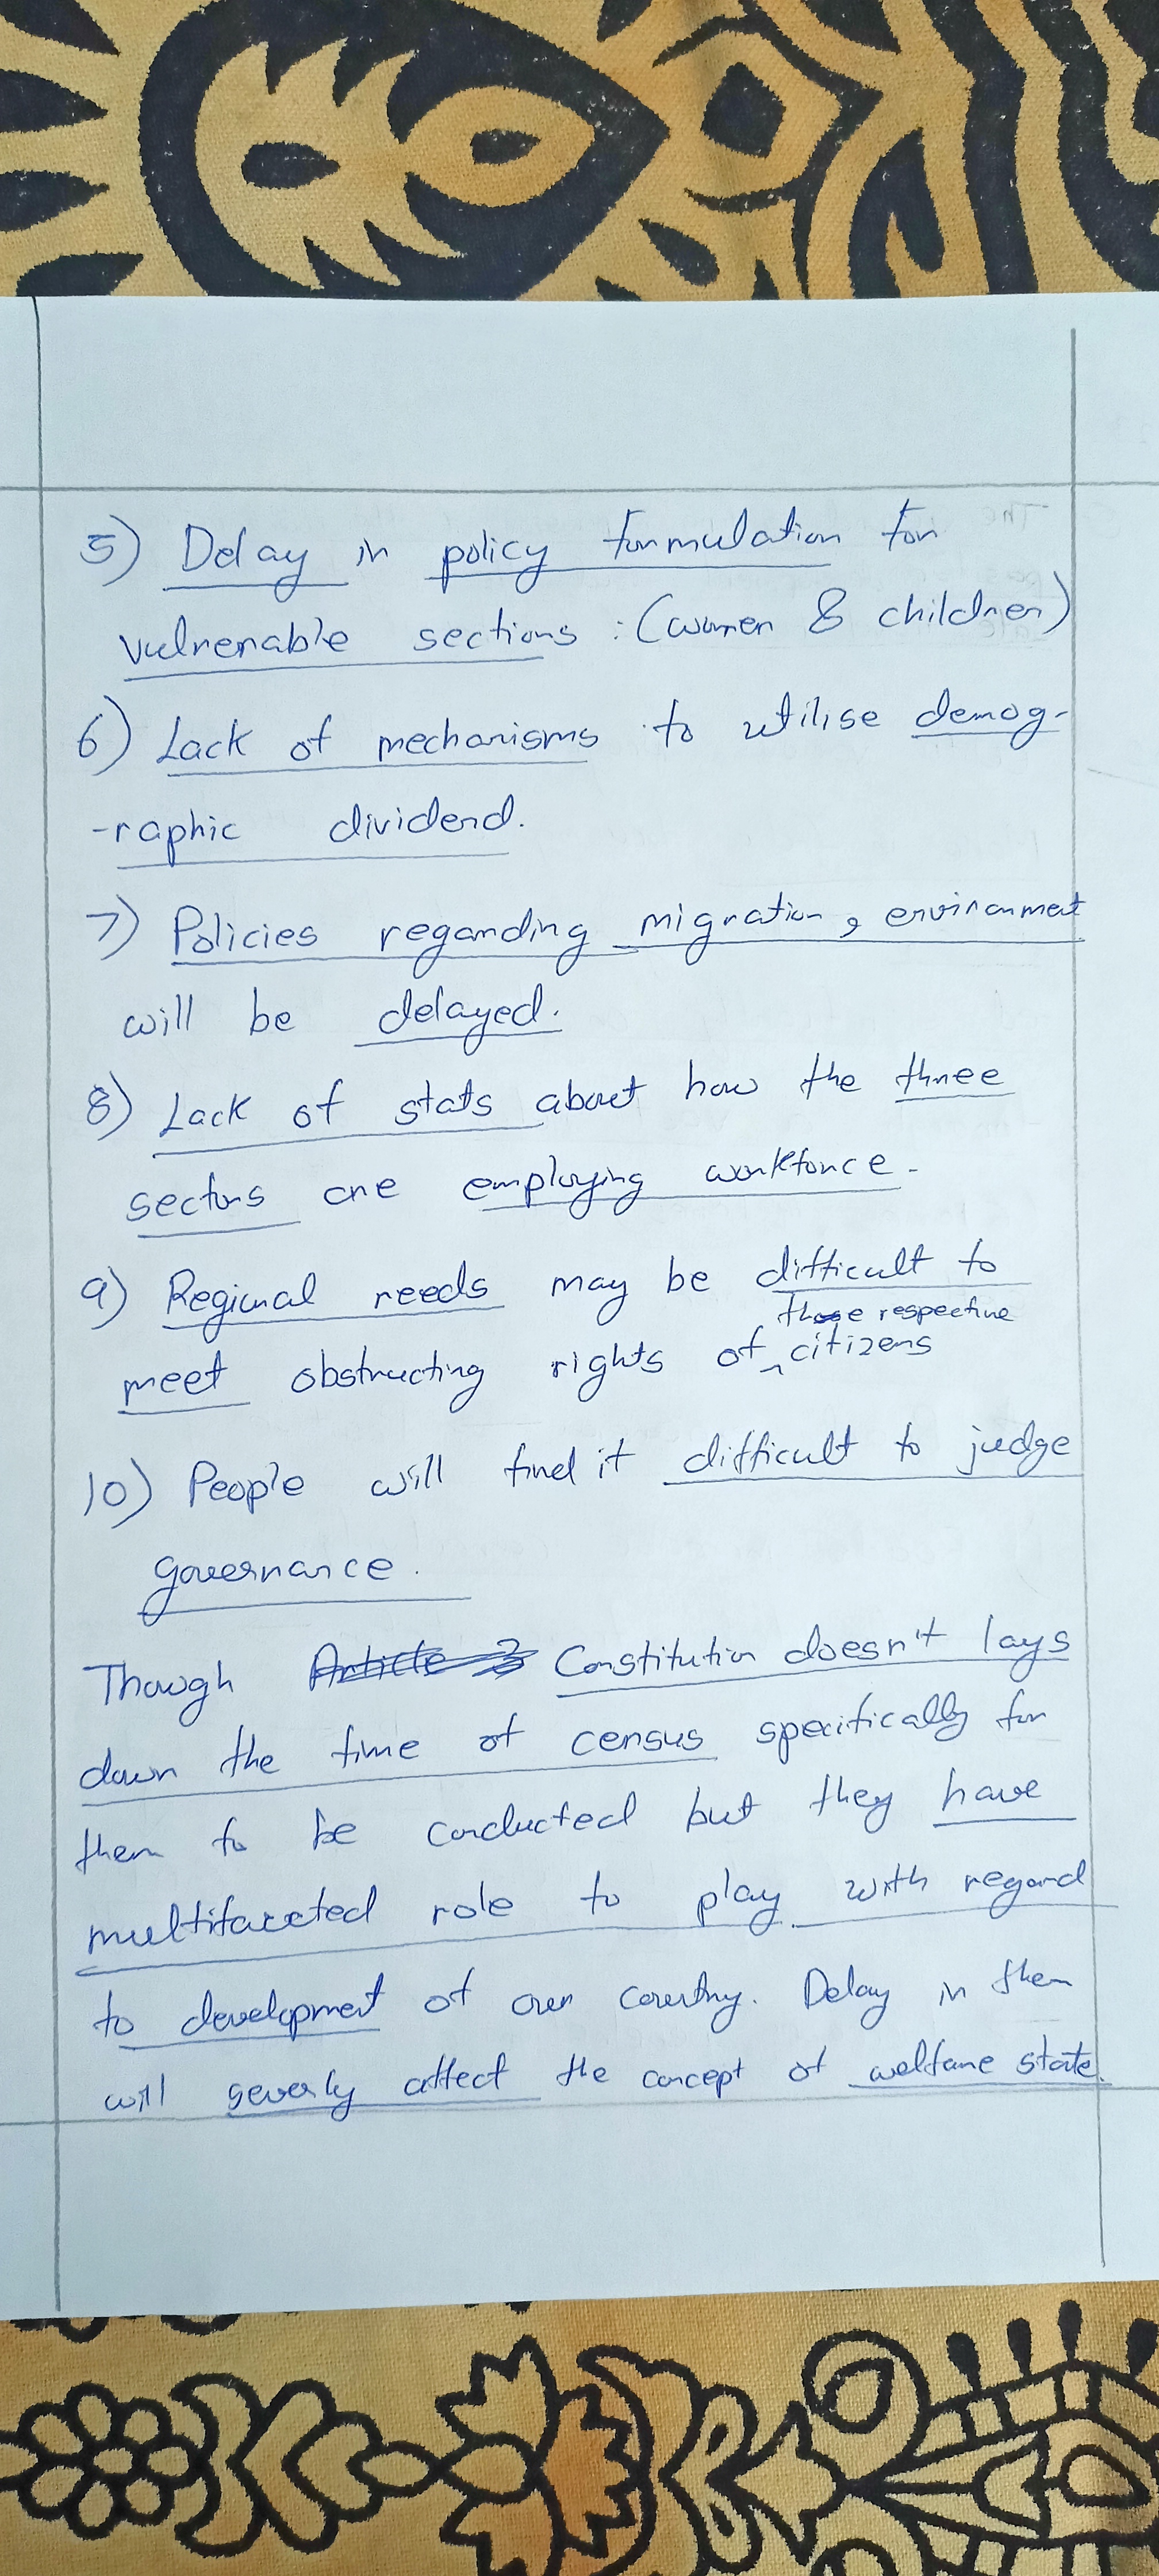 5) Delay in policy formulation for
vulnerable sections : (women & children)
6) Lack of mechanisms to utilise demog-
-raphic dividend.
7) Policies regarding migration, environment
will be delayed.
8) Lack of stats about how the three
sectors are employing workforce.
9) Regional needs may be difficult to
those respective
meet obstructing rights of ^ citizens
10) People will find it difficult to judge
governance.
Though Article 3 Constitution doesn't lays
down the time of census specifically for
them to be conducted but they have
multifaceted role to play with regard
to development of our country. Delay in them
will severly affect the concept of welfare state.